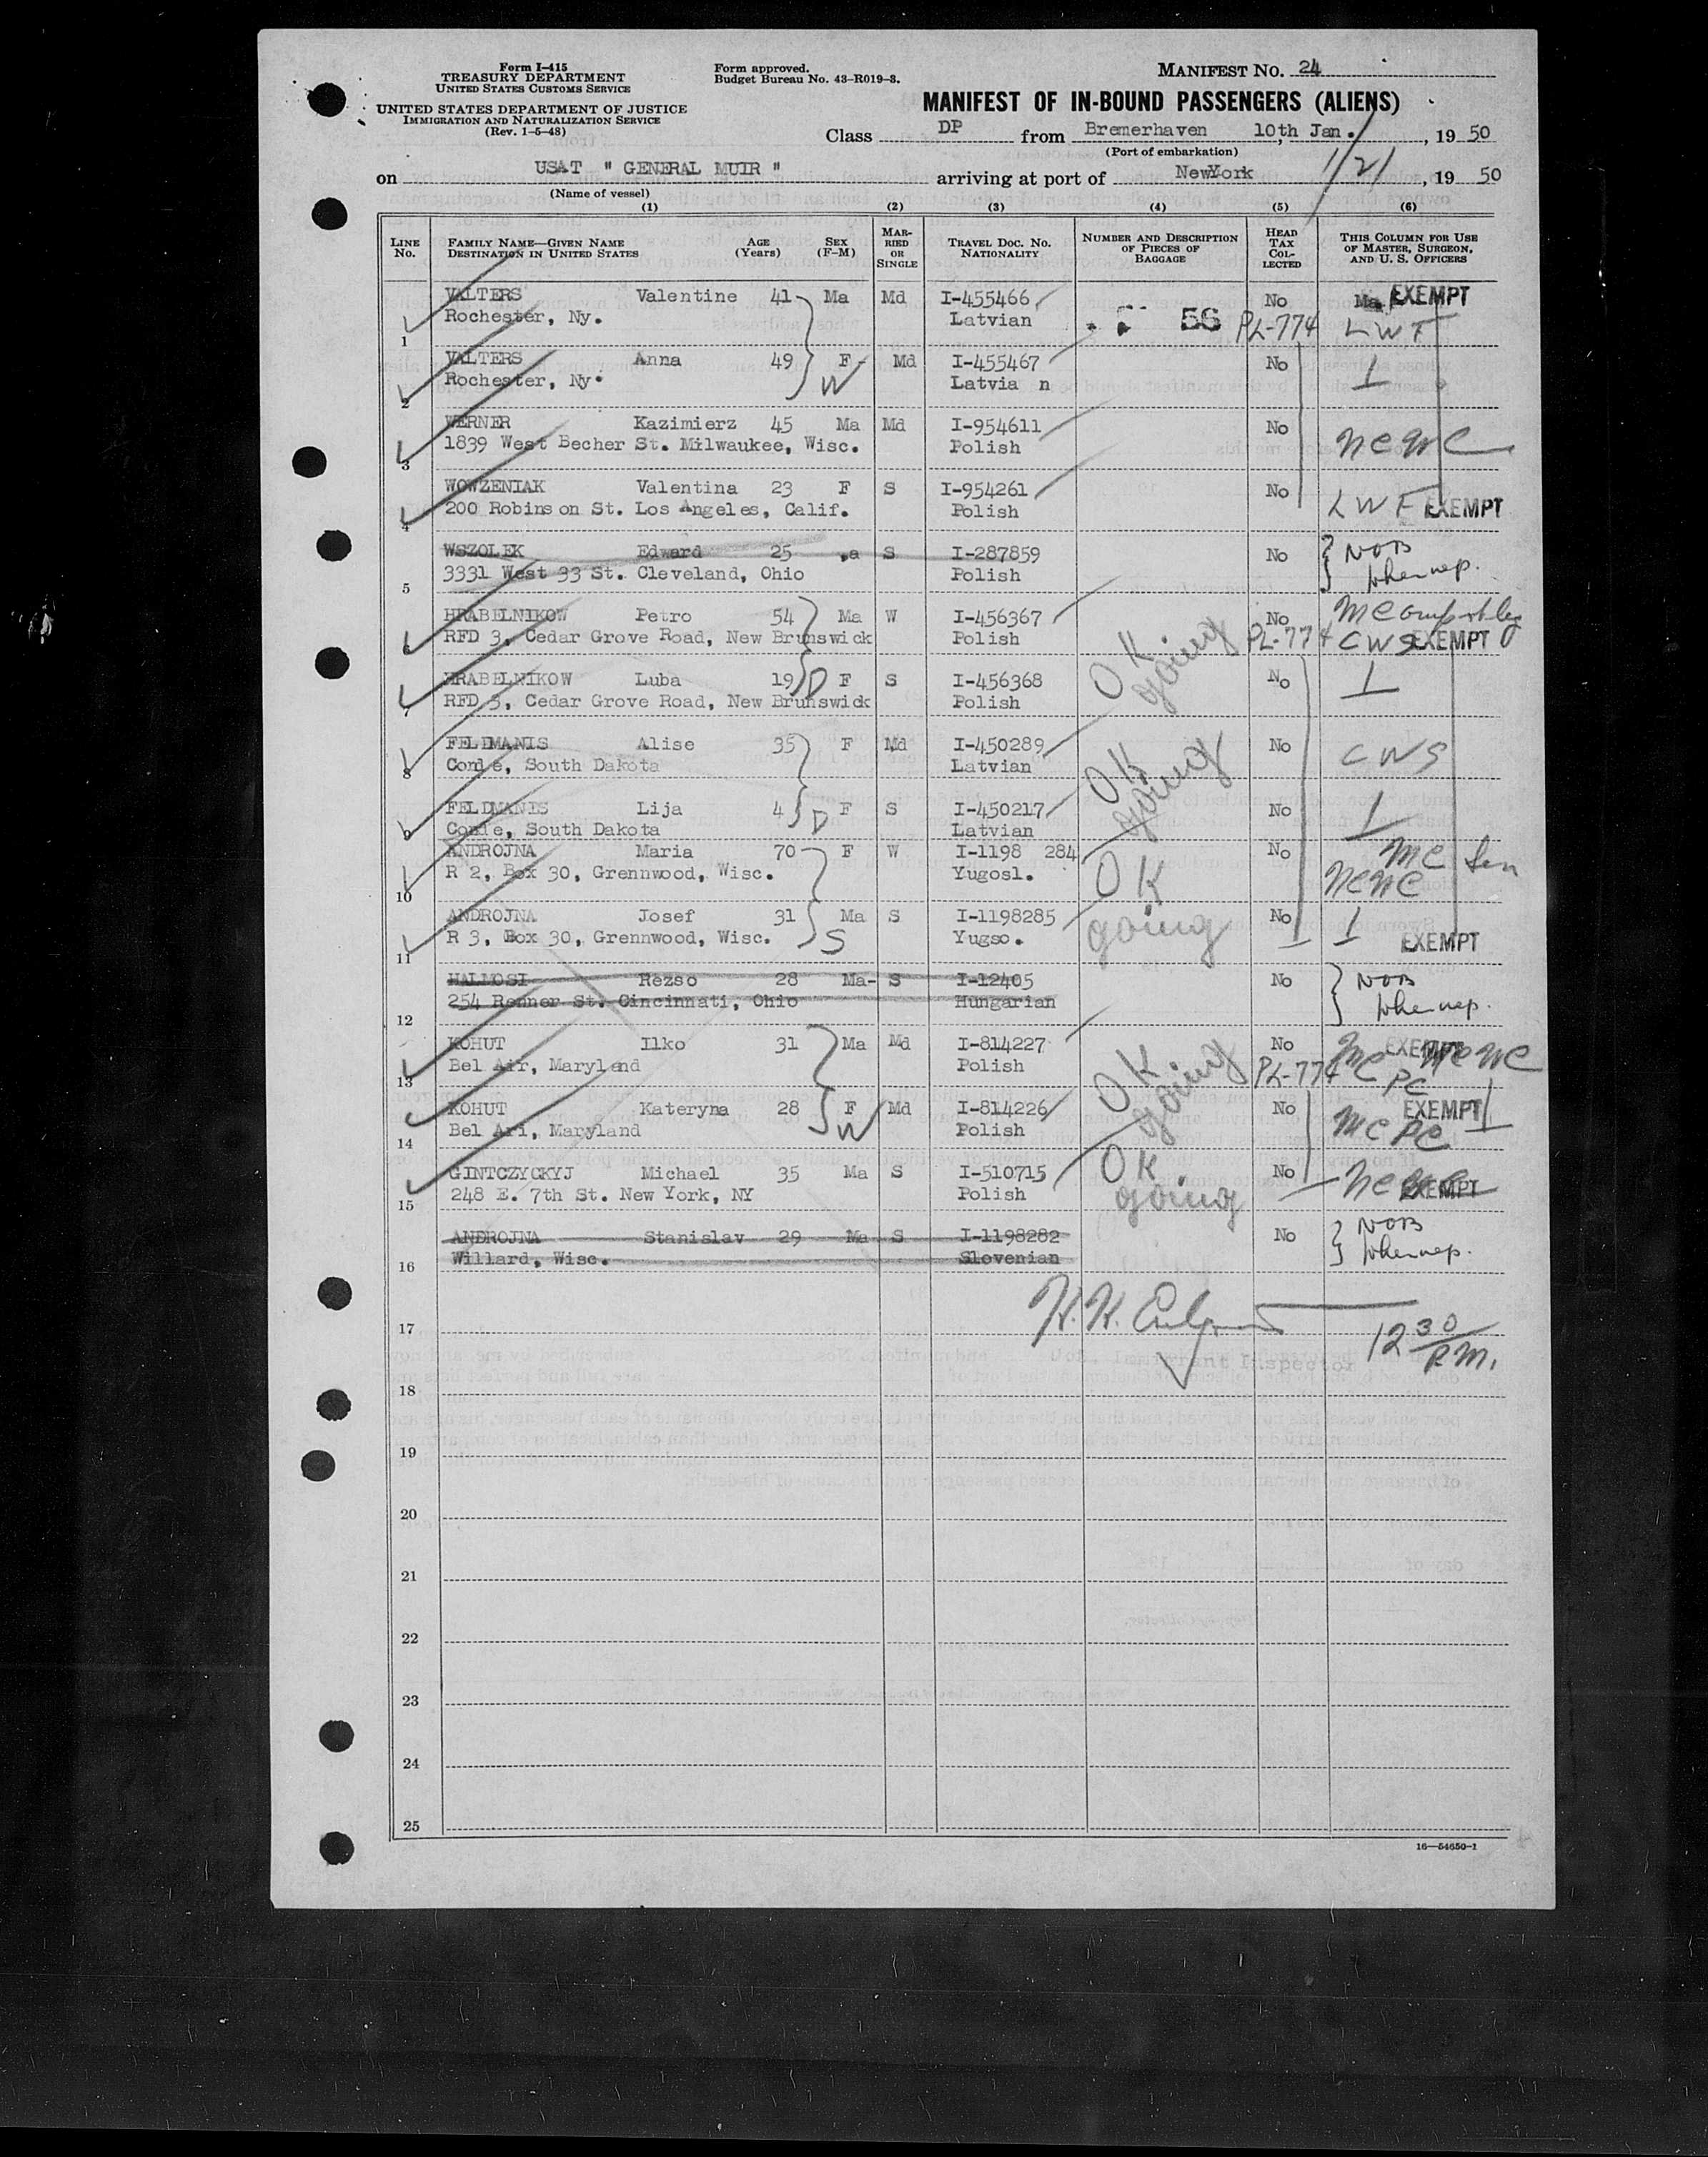 Form I-415
TREASURY DEPARTMENT
UNITED STATES CUSTOMS SERVICE
UNITED STATES DEPARTMENT OF JUSTICE
IMMIGRATION AND NATURALIZATION SERVICE
(Rev. 1-5-48)
Form approved.
Budget Bureau No. 43-R019-3.
MANIFEST NO. 24
MANIFEST OF IN-BOUND PASSENGERS (ALIENS)
Class DP from Bremerhaven 10th Jan., 19 50
(Port of embarkation)
on USAT " GENERAL MUIR " arriving at port of NewYork 1/21, 19 50
(Name of vessel)
(1) (2) (3) (4) (5) (6)
LINE No. FAMILY NAME—GIVEN NAME DESTINATION IN UNITED STATES AGE (Years) SEX (F-M) MARRIED OR SINGLE TRAVEL DOC. NO. NATIONALITY NUMBER AND DESCRIPTION OF PIECES OF BAGGAGE HEAD TAX COLLECTED THIS COLUMN FOR USE OF MASTER, SURGEON, AND U. S. OFFICERS
VALTERS Valentine 41 Ma Md I-455466 No EXEMPT
1 Rochester, Ny. Latvian 56 PL-774 LWF
VALTERS Anna 49 F Md I-455467 No
2 Rochester, Ny. W Latvia n
WERNER Kazimierz 45 Ma Md I-954611 No
3 1839 West Becher St. Milwaukee, Wisc. Polish NCWC
WOWZENIAK Valentina 23 F S I-954261 No
4 200 Robinson St. Los Angeles, Calif. Polish LWF EXEMPT
WSZOLEK Edward 25 ,a S I-287859 No NOB
5 3331 West 33 St. Cleveland, Ohio Polish
HRABELNIKOW Petro 54 Ma W I-456367 No
6 RFD 3, Cedar Grove Road, New Brunswick Polish OK going PL-774 CWS EXEMPT
HRABELNIKOW Luba 19 D F S I-456368 No
7 RFD 3, Cedar Grove Road, New Brunswick Polish
FELDMANIS Alise 35 F Md I-450289 No
8 Conde, South Dakota Latvian OK going CWS
FELDMANIS Lija 4 D F S I-450217 No
9 Conde, South Dakota Latvian
ANDROJNA Maria 70 F W I-1198 284 No MC Sen
10 R 2, Box 30, Grennwood, Wisc. Yugosl. OK going NCWC
ANDROJNA Josef 31 Ma S I-1198285 No
11 R 3, Box 30, Grennwood, Wisc. S Yugso. EXEMPT
HALMOSI Rezso 28 Ma- S I-12405 No NOB
12 254 Renner St. Cincinnati, Ohio Hungarian
KOHUT Ilko 31 Ma Md I-814227 No EXEMPT
13 Bel Air, Maryland Polish OK going PL-774 MC PC NCWC
KOHUT Kateryna 28 F Md I-814226 No EXEMPT
14 Bel Ari, Maryland W Polish MC PC
GINTCZYCKYJ Michael 35 Ma S I-510715 No
15 248 E. 7th St. New York, NY Polish OK going NCWC EXEMPT
ANDROJNA Stanislav 29 Ma S I-1198282 No NOB
16 Willard, Wisc. Slovenian
17
Immigrant Inspector 12 30 P.M.
18
19
20
21
22
23
24
25
16—54650-1